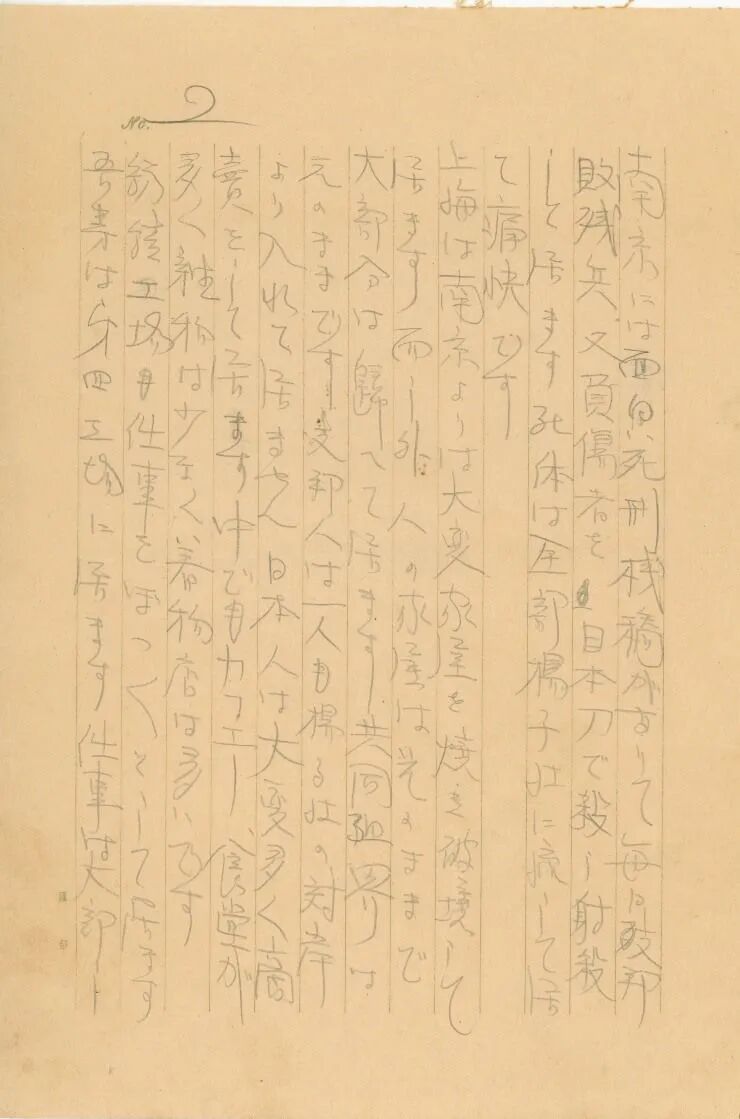 No. 2
南京には面白い死刑桟橋がありて毎日支那
敗残兵又負傷者を日本刀で殺し射殺
して居ます死体は全部楊子江に流して居
て痛快です
上海は南京よりは大変家屋を焼き破壊して
居ます而し外人の家屋は其のままで
大部分は歸へて居ます共同租界は
元のままです支那人は一人も楊子江の対岸
より入れて居ません日本人は大変多く商
賣をして居ます中でもカフエー、食堂が
多く雑物は少なく着物店は多いです
紡績工場も仕事をぼつ〳〵として居ます
吾等は第四工場に居ます仕事は大部